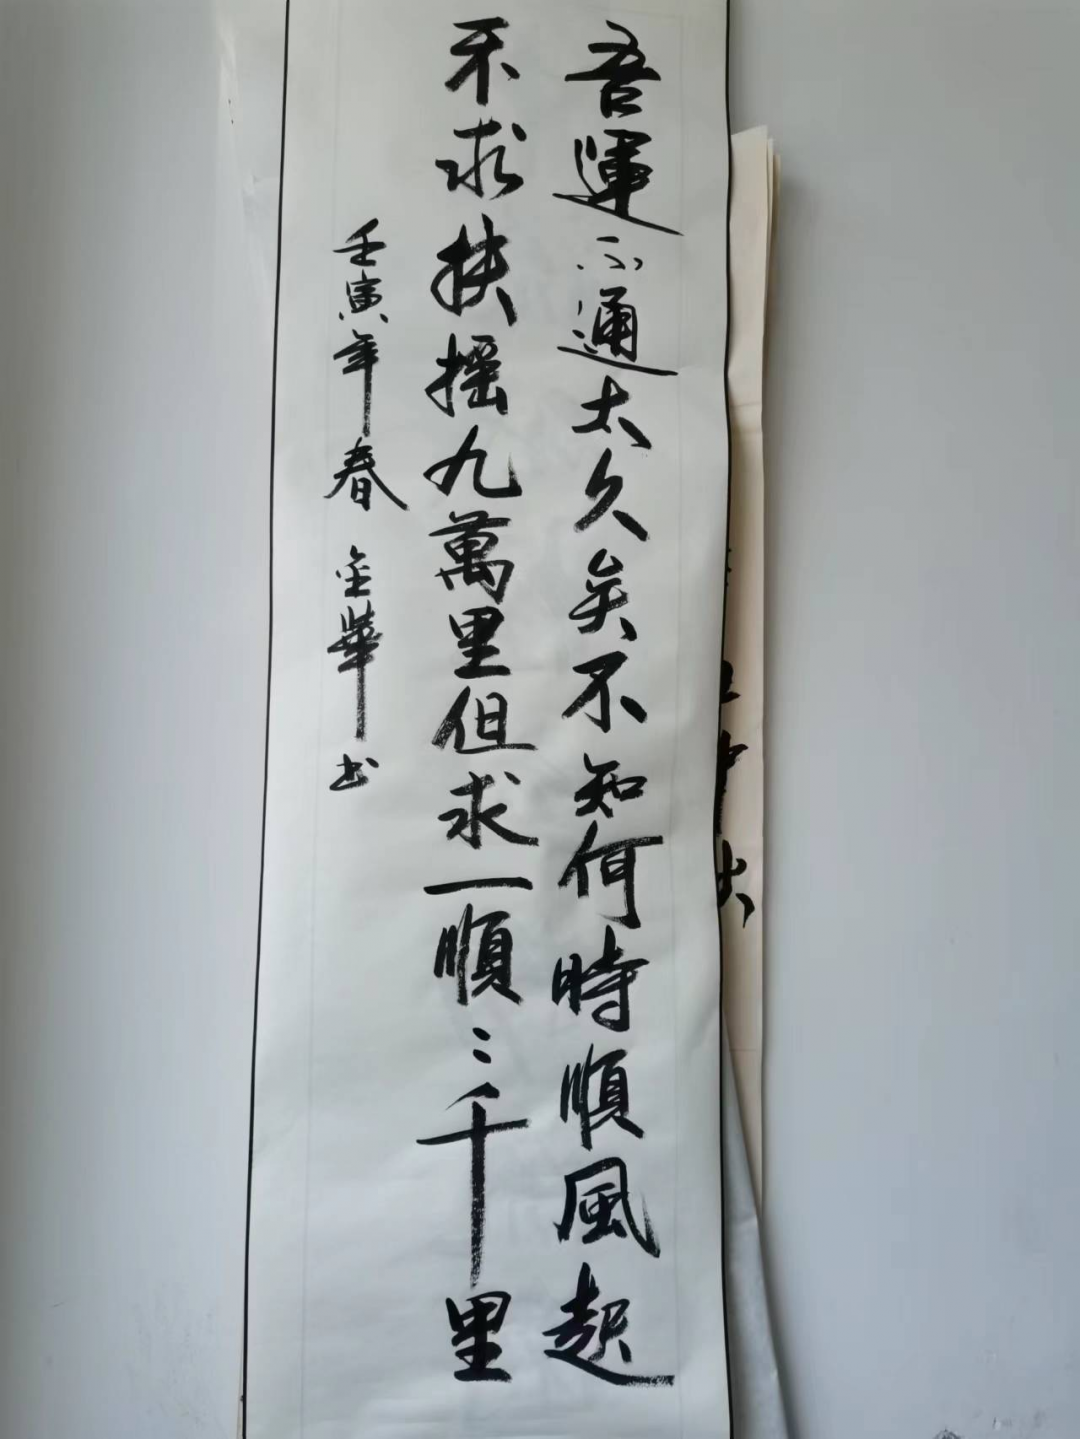 吾運不通太久矣不知何時順風起
不求扶摇九萬里但求一順〻千里
壬寅年春 金華书